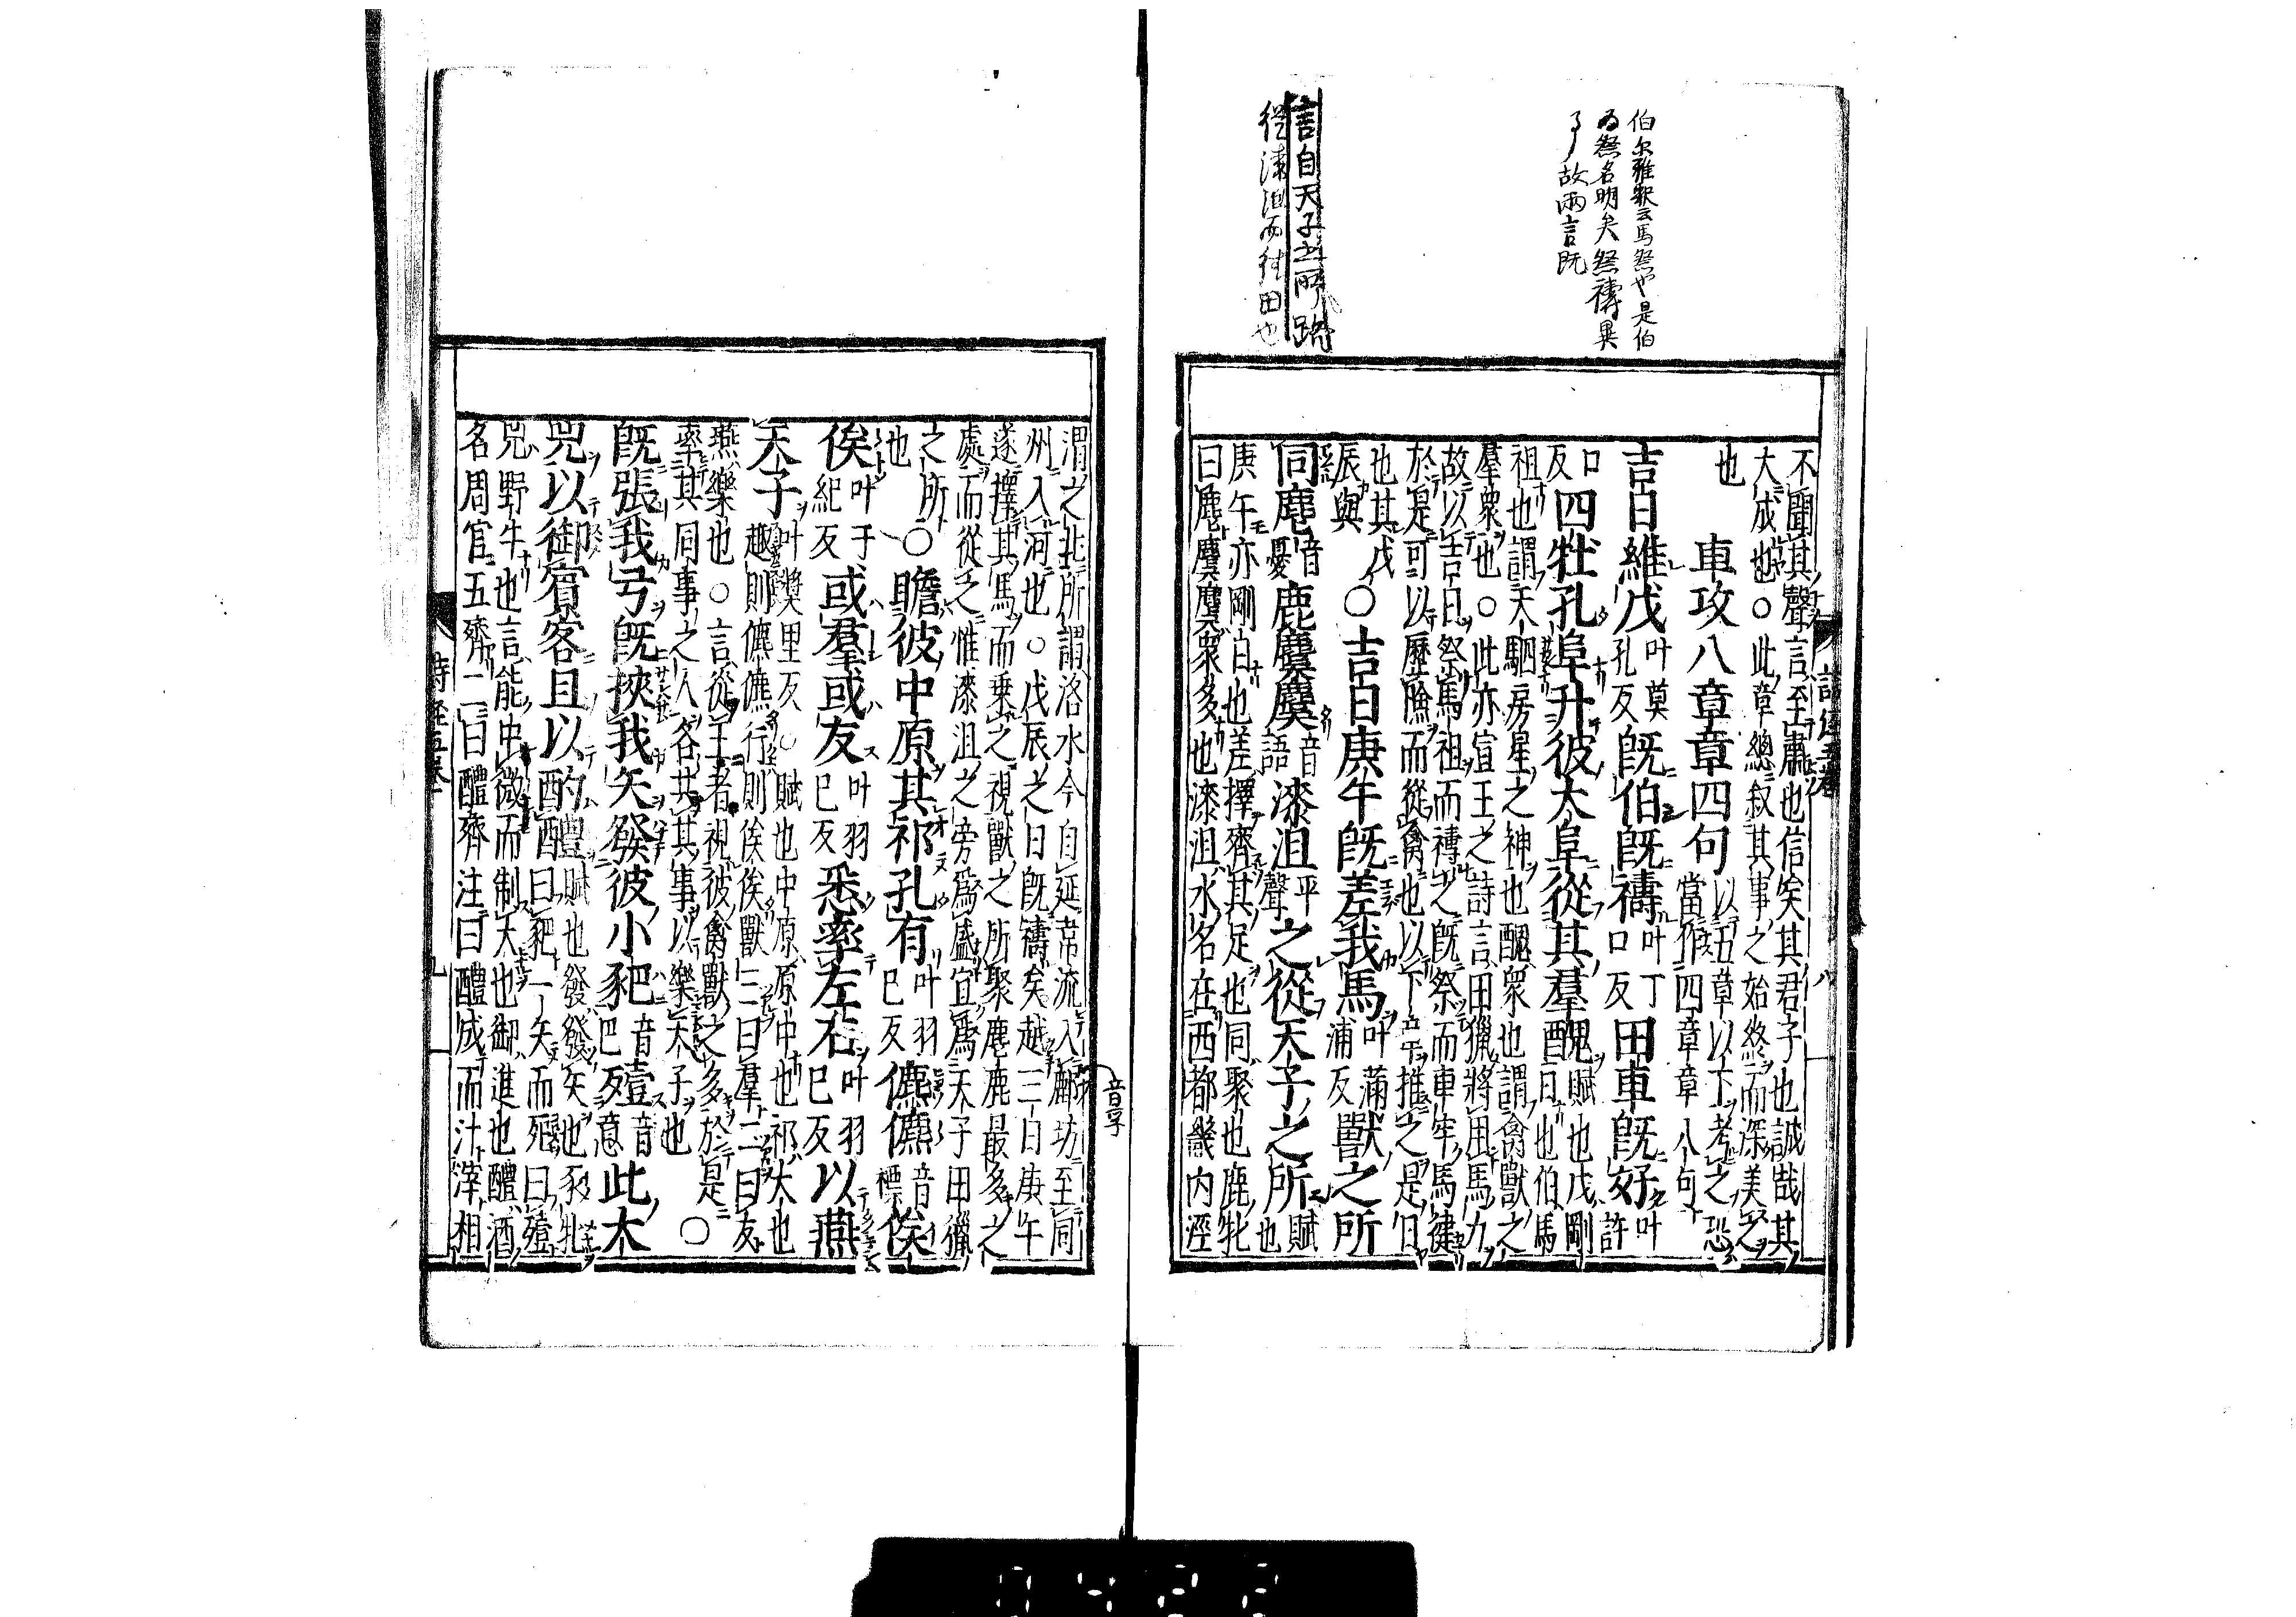 伯尔雅釈云馬祭也是伯
為祭名明矣祭禱異
故兩言既
言自天子之所
從漆沮而徃田也
不聞其聲言至肅也信矣其君子也誠哉其
大成也○此章總叙其事之始終而深美之
也
車攻八章章四句
以五章以下考之恐
當作四章章八句
吉日維戊
叶莫
孔反
既伯既禱
叶丁
口反
田車既好
叶許
口
反
四牡孔阜升彼大阜從其羣醜
賦也戊剛
日也伯馬
祖也謂天駟房星之神也醜衆也謂禽獸之
羣衆也○此亦宣王之詩言田獵將用馬力
故以吉日祭馬祖而禱之既祭而車牢馬健
於是可以歷險而從禽也以下章推之是日
也其戊
辰與
○吉日庚午既差我馬
叶滿
浦反
獸之所
同麀
音
憂
鹿麌麌
音
語
漆沮
平
聲
之從天子之所
賦
也
庚午亦剛日也差擇齊其足也同聚也鹿牝
曰麀麌麌衆多也漆沮水名在西都畿內涇
渭之北所謂洛水今自延韋流入鄜坊至同
音孚
州入河也○戊辰之日既禱矣越三日庚午
遂擇其馬而乗之視獸之所聚麀鹿最多之
處而從之惟漆沮之旁為盛宜為天子田獵
之所
也
○瞻彼中原其祁孔有
叶羽
巳反
儦儦
音
標
俟
俟
叶于
紀反
或羣或友
叶羽
巳反
悉率左右
叶羽
巳反
以燕
天子
叶獎里反○賦也中原原中也祁大也
趨則儦儦行則俟俟獸三曰羣二曰友
燕樂也○言從王者視彼禽獸之多於是
率其同事之人各共其事以樂天子也
○
既張我弓既挾我矢發彼小豝
音
巴
殪
音
意
此大
兕以御賓客且以酌醴
賦也發發矢也豕牝
曰豝一矢而死曰殪
兕野牛也言能中微而制大也御進也醴酒
名周官五齊二曰醴齊注曰醴成而汁滓相
詩經五卷
八
詩経五巻
九